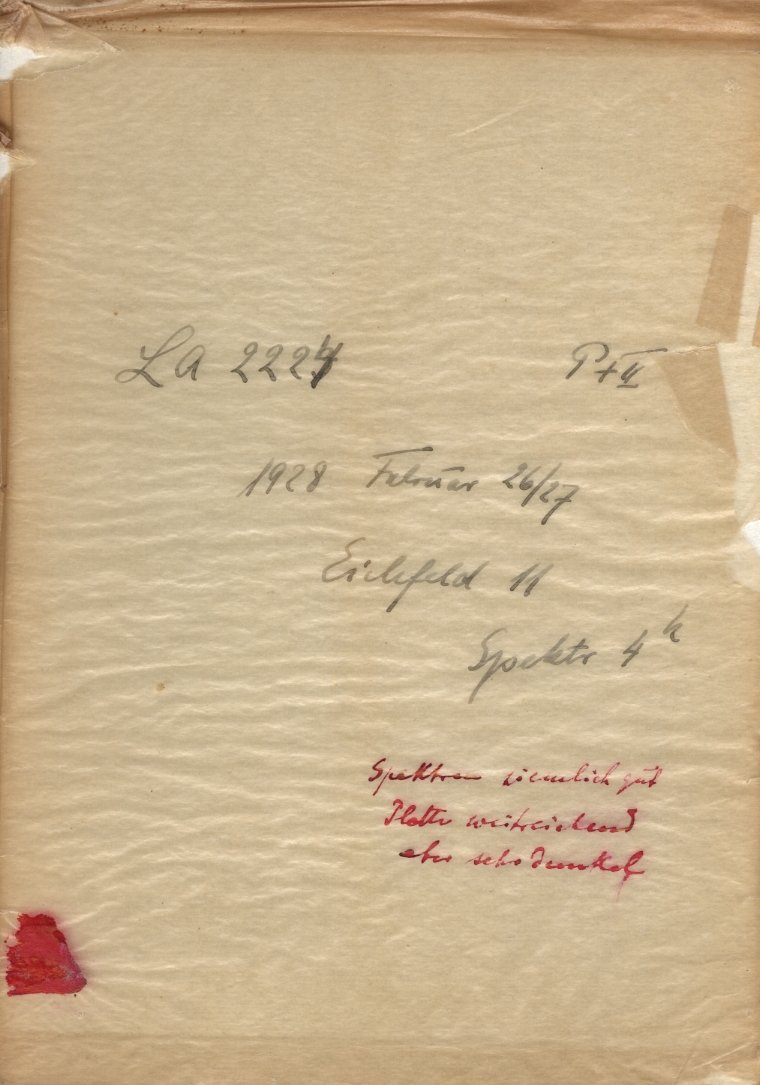 LA 2224 P+II
1928 Februar 26/27
Eichfeld 11
Spektr 4h
Spektren ziemlich gut
Platte weitreichend
aber sehr dunkel